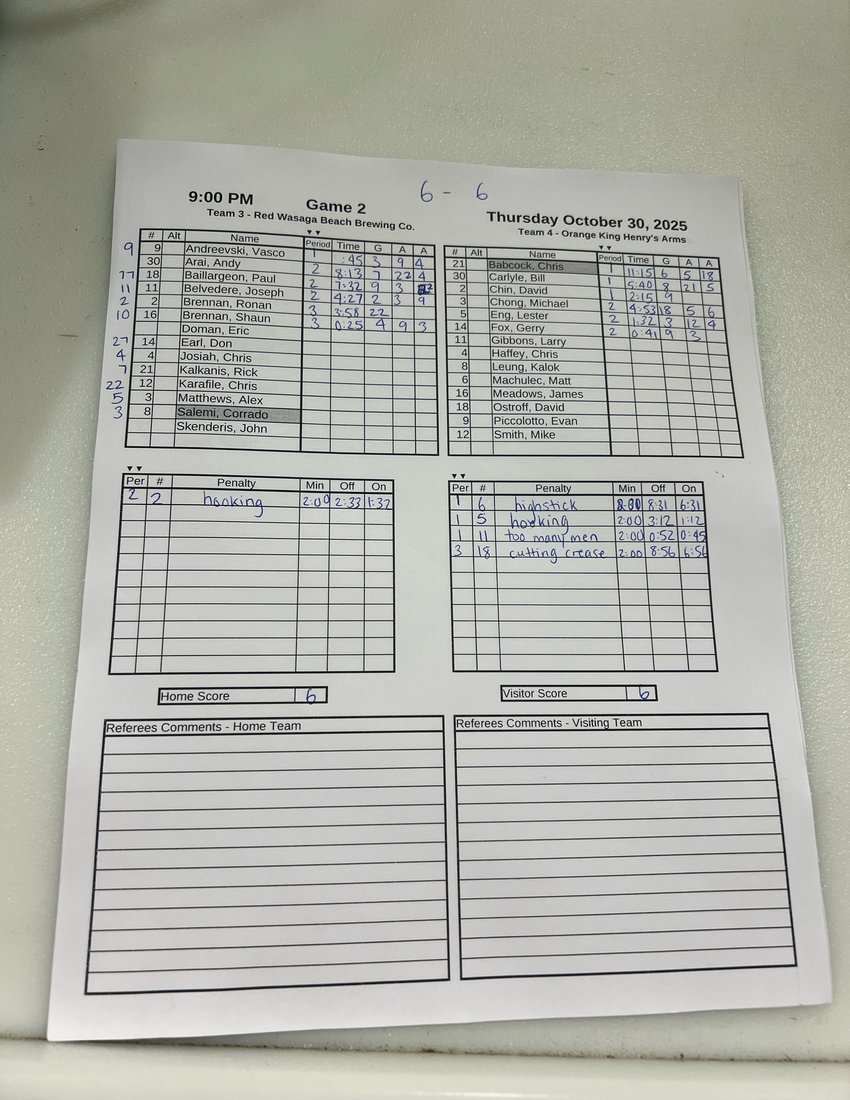 6 - 6
9:00 PM Game 2
Team 3 - Red Wasaga Beach Brewing Co.
# Alt Name Period Time G A A
9 9 Andreevski, Vasco 1 :45 3 9 4
30 Arai, Andy 2 8:13 7 22 4
77 18 Baillargeon, Paul 2 7:32 9 3
11 11 Belvedere, Joseph 2 4:27 2 3 9
2 2 Brennan, Ronan 3 3:58 22
10 16 Brennan, Shaun 3 0:25 4 9 3
Doman, Eric
27 14 Earl, Don
4 4 Josiah, Chris
7 21 Kalkanis, Rick
22 12 Karafile, Chris
5 3 Matthews, Alex
3 8 Salemi, Corrado
Skenderis, John
Thursday October 30, 2025
Team 4 - Orange King Henry's Arms
# Alt Name Period Time G A A
21 Babcock, Chris 1 11:15 6 5 18
30 Carlyle, Bill 1 5:40 8 21 5
2 Chin, David 1 2:15 9
3 Chong, Michael 2 4:53 18 5 6
5 Eng, Lester 2 1:32 3 12 4
14 Fox, Gerry 2 0:41 9 3
11 Gibbons, Larry
4 Haffey, Chris
8 Leung, Kalok
6 Machulec, Matt
16 Meadows, James
18 Ostroff, David
9 Piccolotto, Evan
12 Smith, Mike
Per # Penalty Min Off On
2 2 hooking 2:00 2:33 1:37
Per # Penalty Min Off On
1 6 highstick 8:31 6:31
1 5 hooking 2:00 3:12 1:12
1 11 too many men 2:00 0:52 0:45
3 18 cutting crease 2:00 8:56 6:56
Home Score 6
Visitor Score 6
Referees Comments - Home Team
Referees Comments - Visiting Team